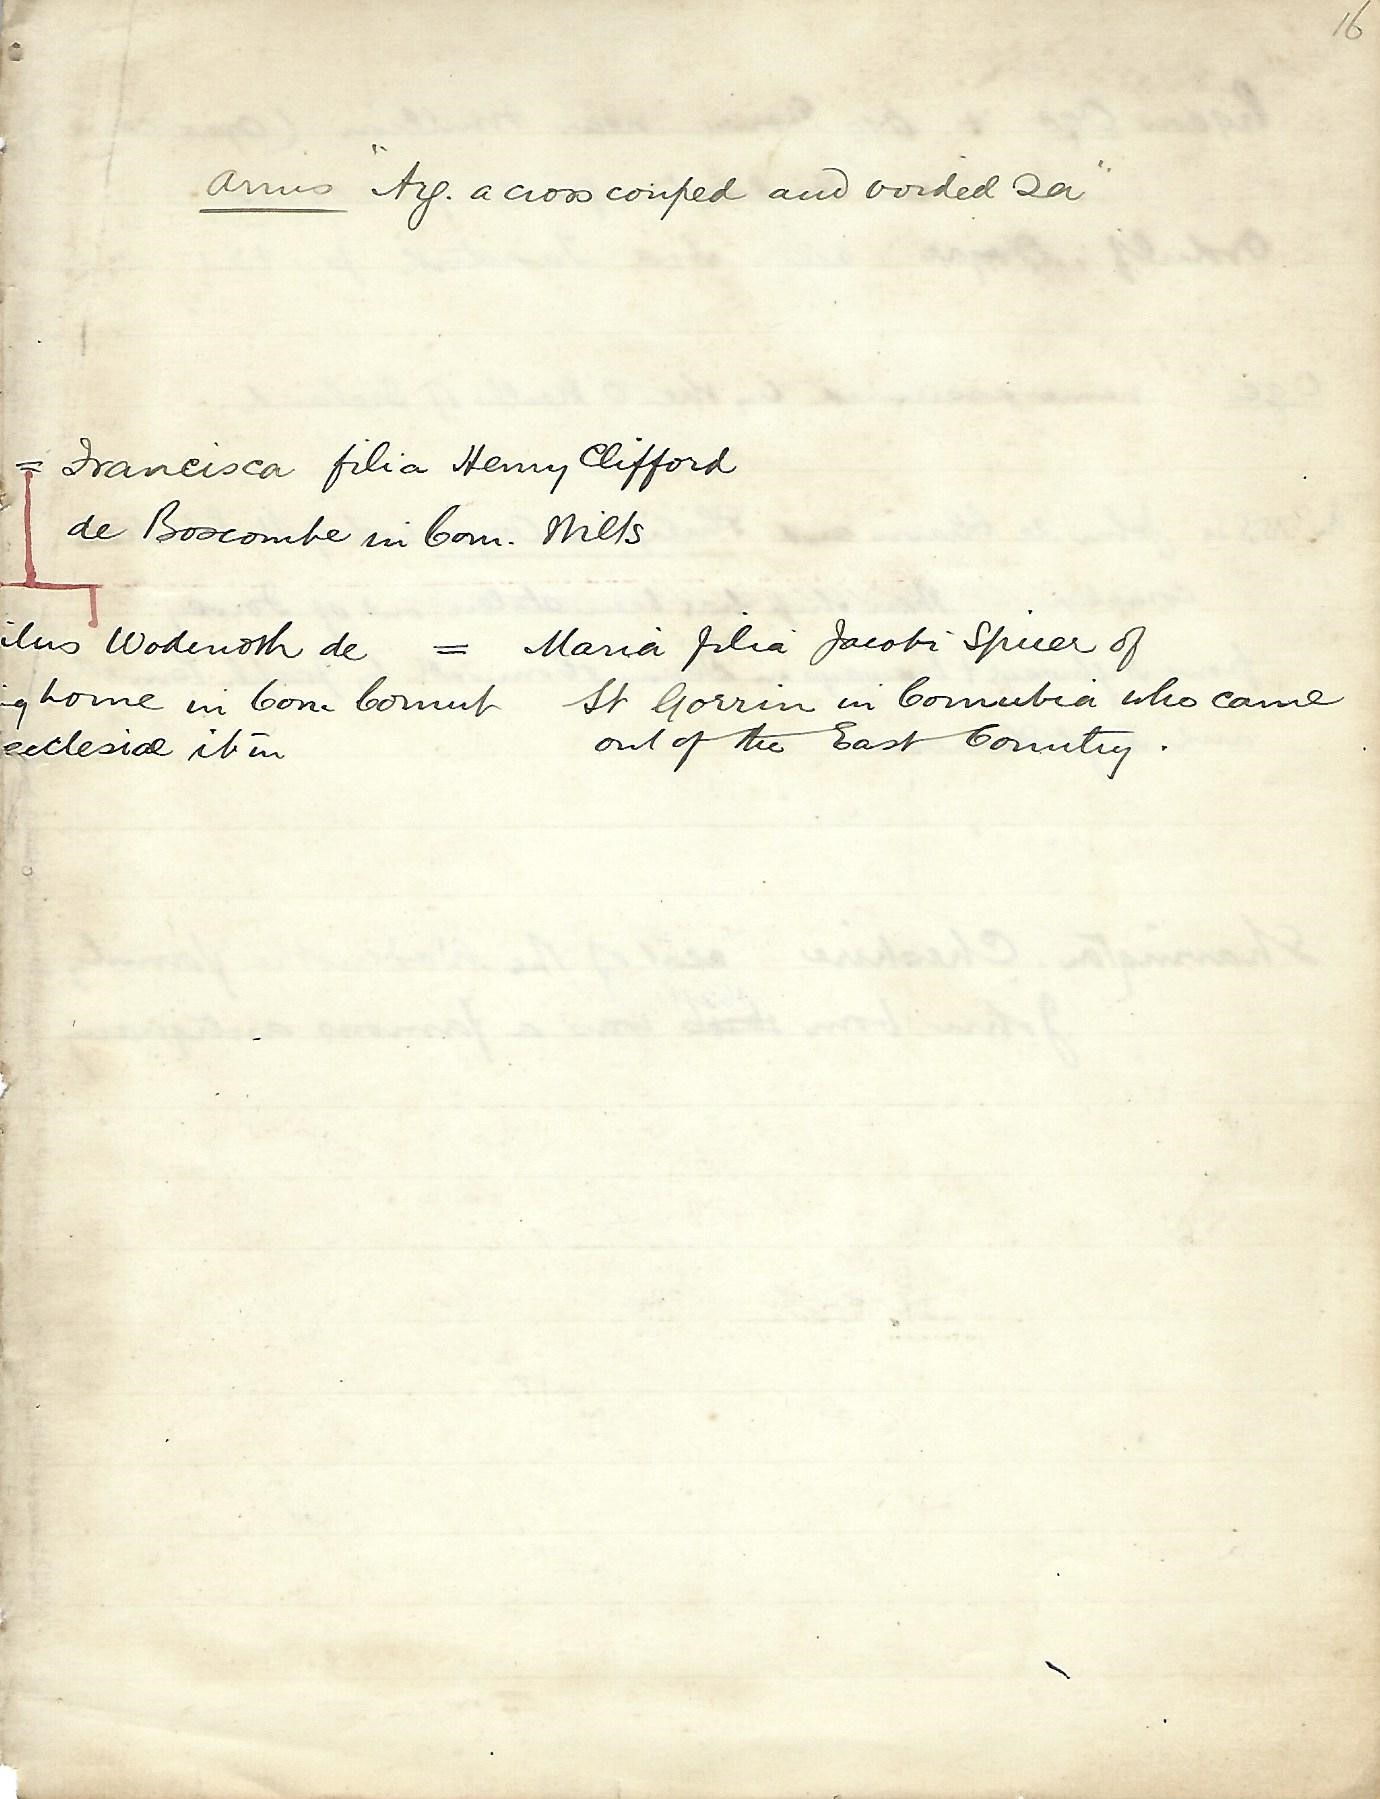 16
Arms "Arg. a cross couped and voided Sa"
= Francisca filia Henry Clifford
de Boscombe in Com. Wilts
ilus Wodenoth de = Maria filia Jacobi Spicer of
home in Com Cornub St Gorrin in Cornubia who came
ecclesiæ ibm out of the East Country.